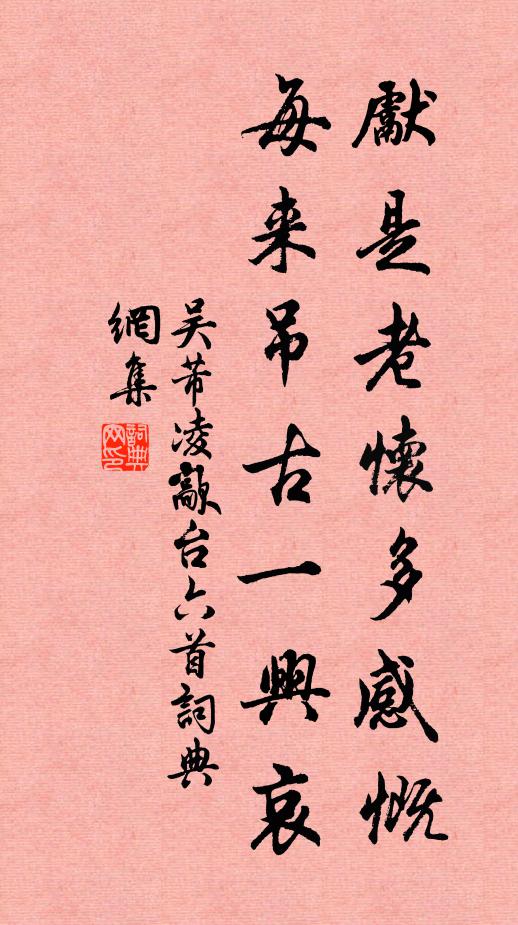 獻是老懷多感慨
每来吊古一興哀
吴芾凌歊台六首詞典
網集
詞典
网印